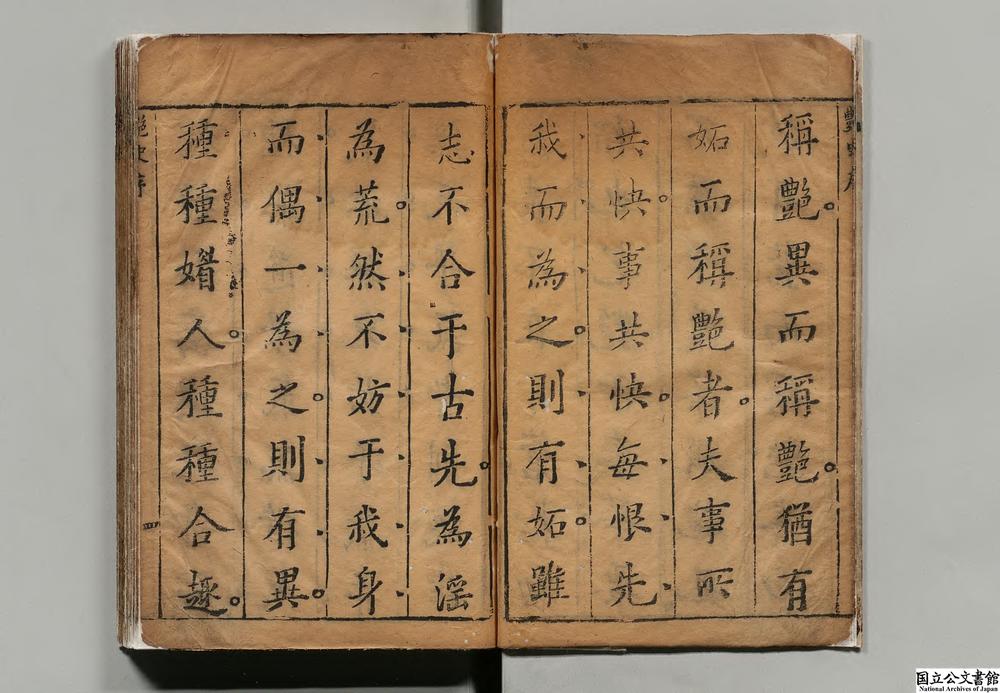 稱艷異而稱艷猶有
妬而稱艷者夫事所
共快事共快每恨先
我而為之則有妬雖
志不合于古先為滛
為荒然不妨于我身
而偶一為之則有異
種種婿人種種合趣
艷史序
艷史序
四
国立公文書館
National Archives of Japan